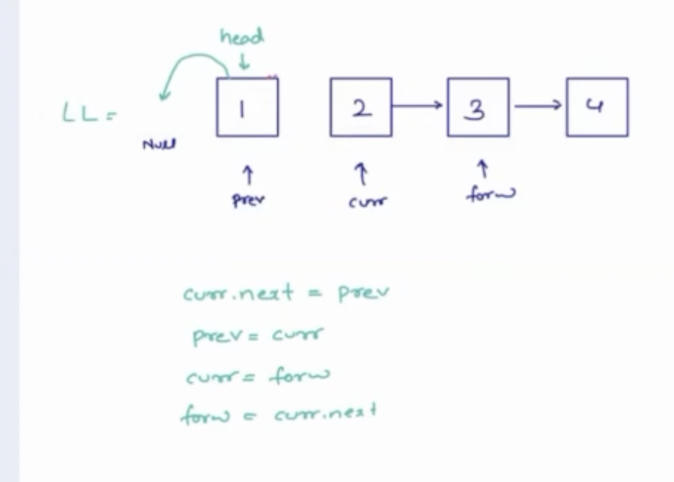 head
LL = 1 2 3 4
Null
prev curr forw
curr.next = prev
prev = curr
curr = forw
forw = curr.next